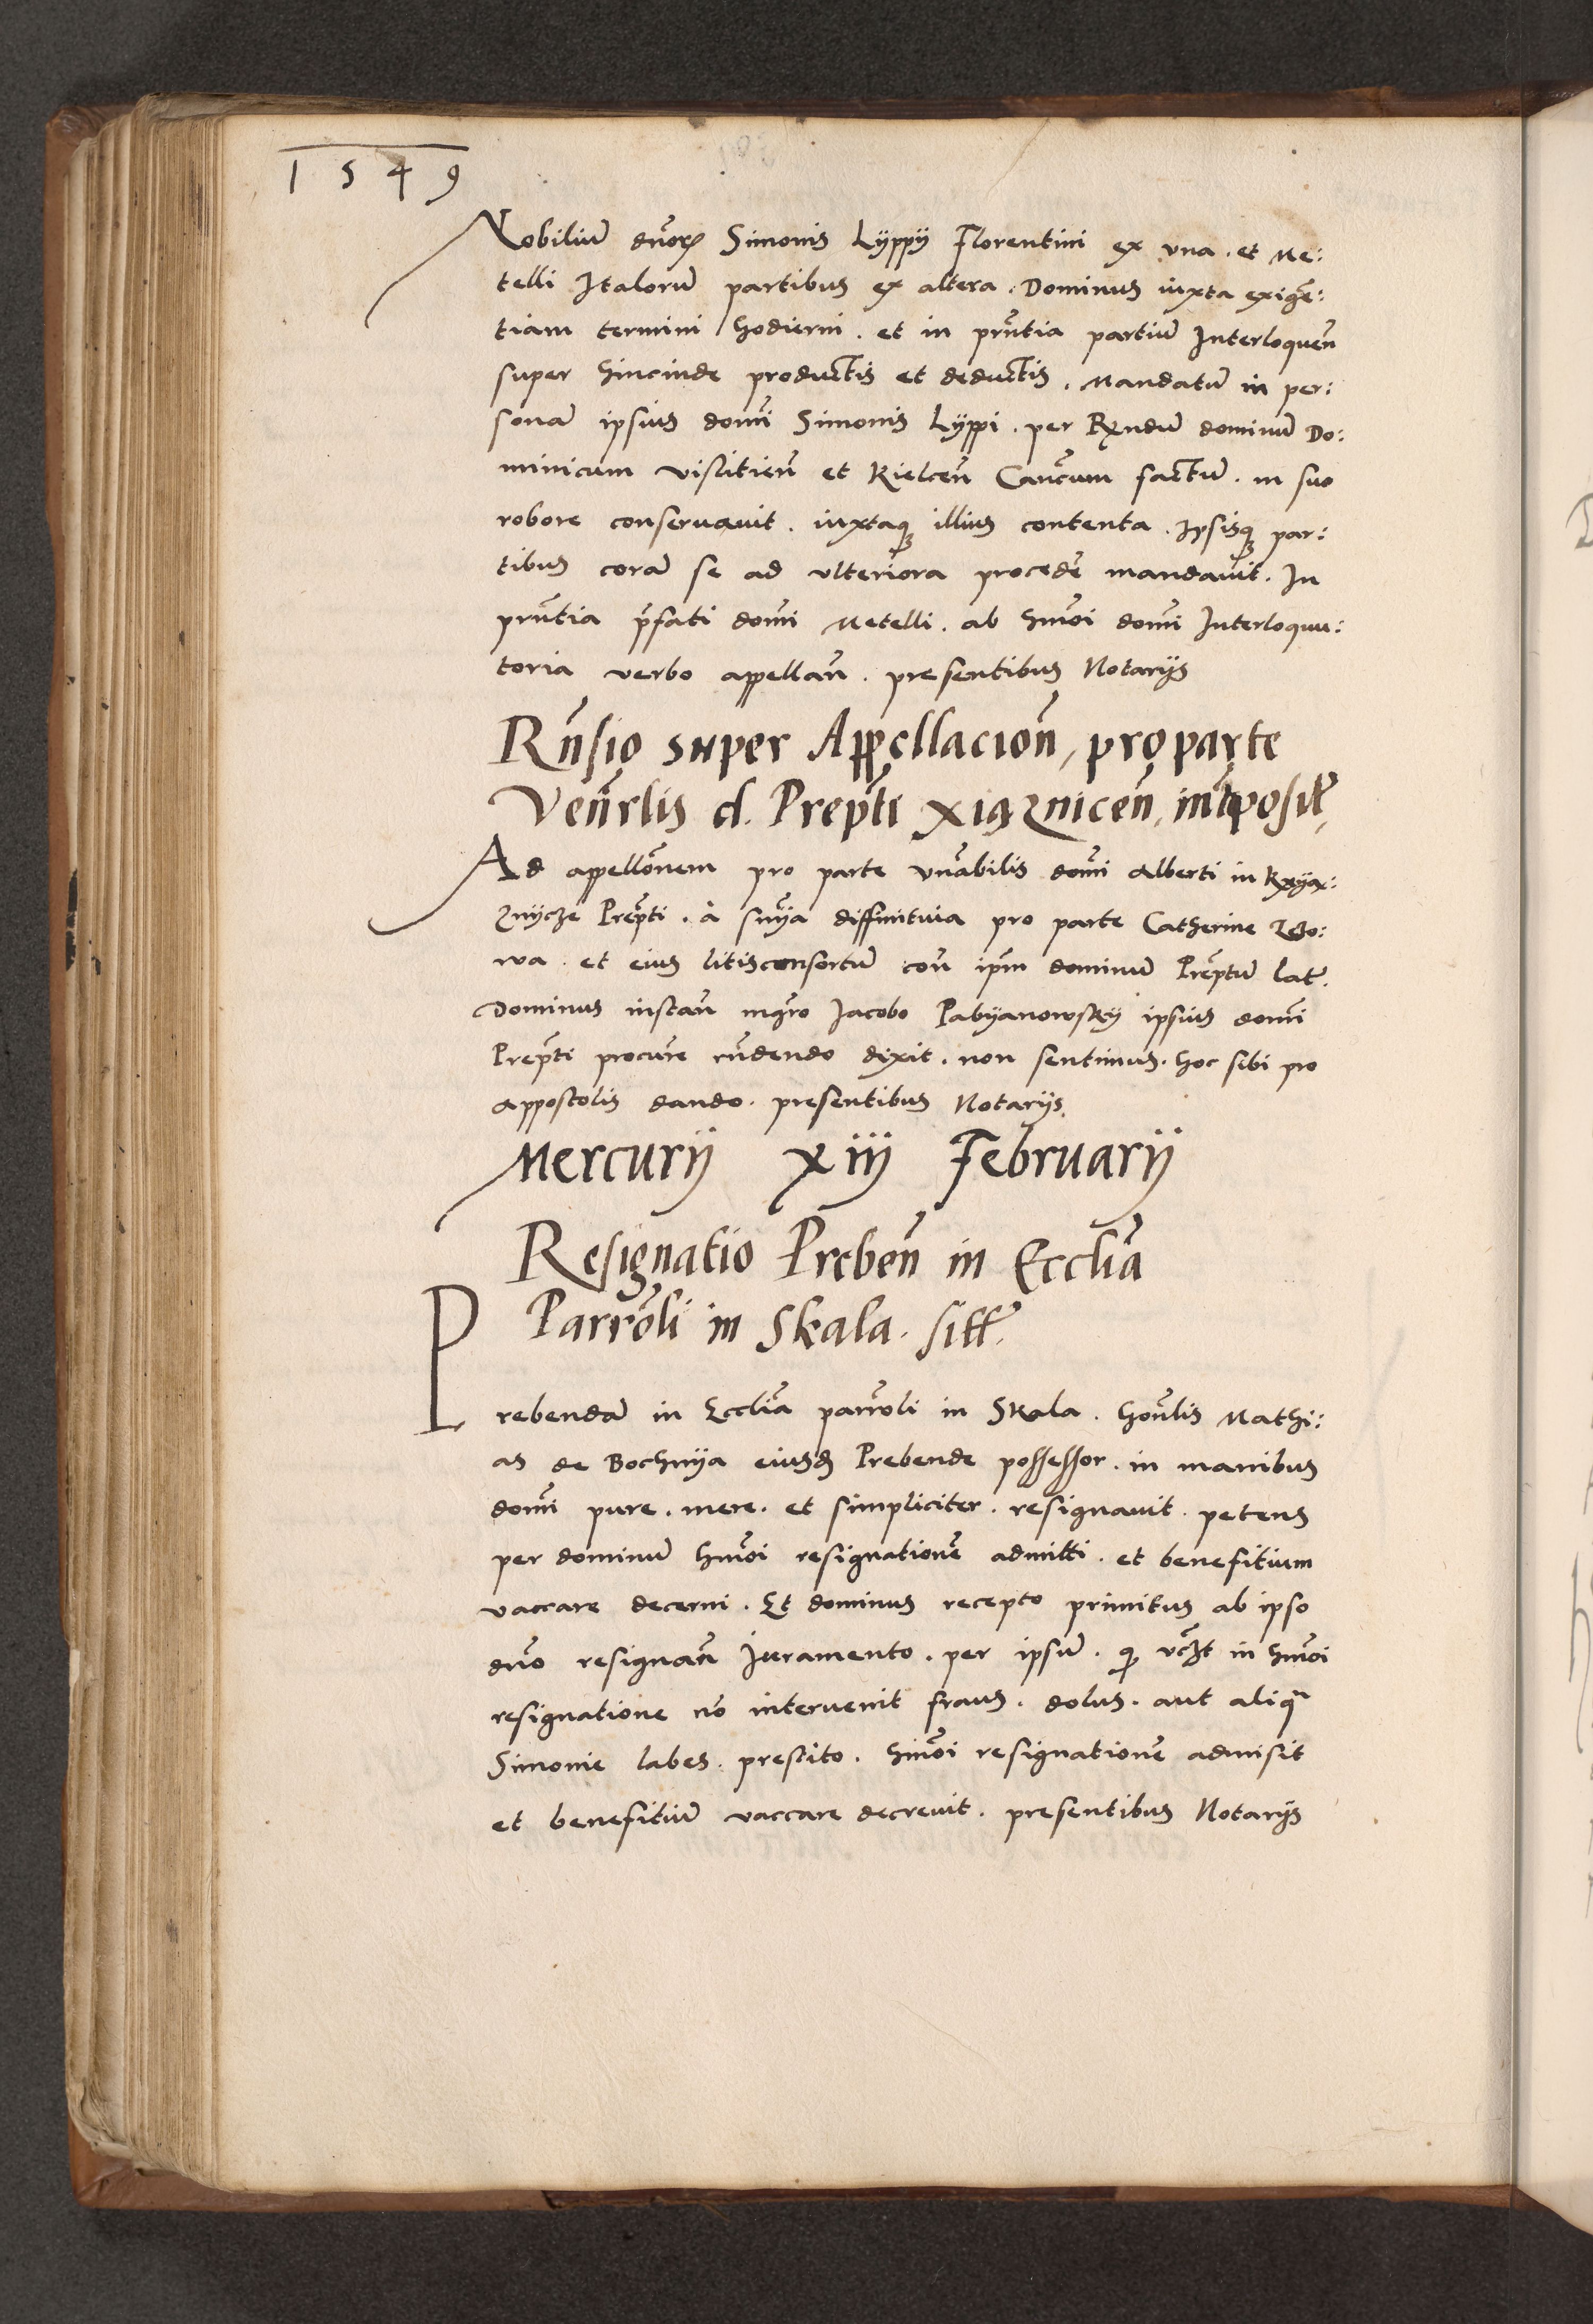 1549
Nobiliũ dnõꝝ Simonis Lÿppÿ Florentini ex vna . et Me:
telli Italorũ partibus ex altera . Dominus iuxta exigẽ:
tiam termini hodierni . et in pn̄tia partiũ Interloqueñ
super hincinde productis et deductis . Mandatũ in per:
sonã ipsius domĩ Simonis Lÿppi . per Rn̄dũ dominũ Do:
minicum visliticieñ et Kielceñ Cañcum factũ . in suo
robore conseruauit . iuxtaqꝫ illius contenta . Ipsisqꝫ par:
tibus corã se ad vlteriora procedẽ mandauit . In
pn̄tia p̃fati domĩ Metelli . ab hmõi domĩ Interloquu:
toria verbo appellañ . presentibus Notarÿs
Rñsio super Appellacioñ, pro parte
Veñrlis d. Prep̃ti Xiązniceñ, int̃posit̃,
Ad appellõnem pro parte vñabilis domĩ Alberti in Kxÿąx:
znÿcze Prep̃ti . à snÿa diffinitiuia pro parte Catherine
wa . et eius litisconsortũ coñ ip̃m dominũ Prep̃tũ lat̃.
Dominus instañ mgr̃o Iacobo Pabÿanowskÿ ipsius domĩ
Prep̃ti procur̃e rñdendo dixit . non sentimus . hoc sibi pro
appostolis dando . presentibus Notarÿs.
Mercurÿ xiij Februarÿ
Resignatio Prebeñ in Ecclĩa
Parrõli in Skala . sitt̃.
Prebendã in Ecclĩa parrõli in Skala . hoñlis Mathi:
as de Bochnÿa eiusd̃ Prebende possessor . in manibus
domĩ pure . mere . et simpliciter . resignauit . petens
per dominũ hmõi resignationẽ admitti . et benefitium
vaccare decerni . Et dominus recepto primitus ab ipso
dño resignañ Iuramento . per ipsũ . ꝙ vc̃ꝫt in hmõi
resignatione nõ interuenit fraus . dolus . aut aliqᵃ
Simonie labes . prestito . hmõi resignationẽ admisit
et benefitiũ vaccare decreuit . presentibus Notarÿs